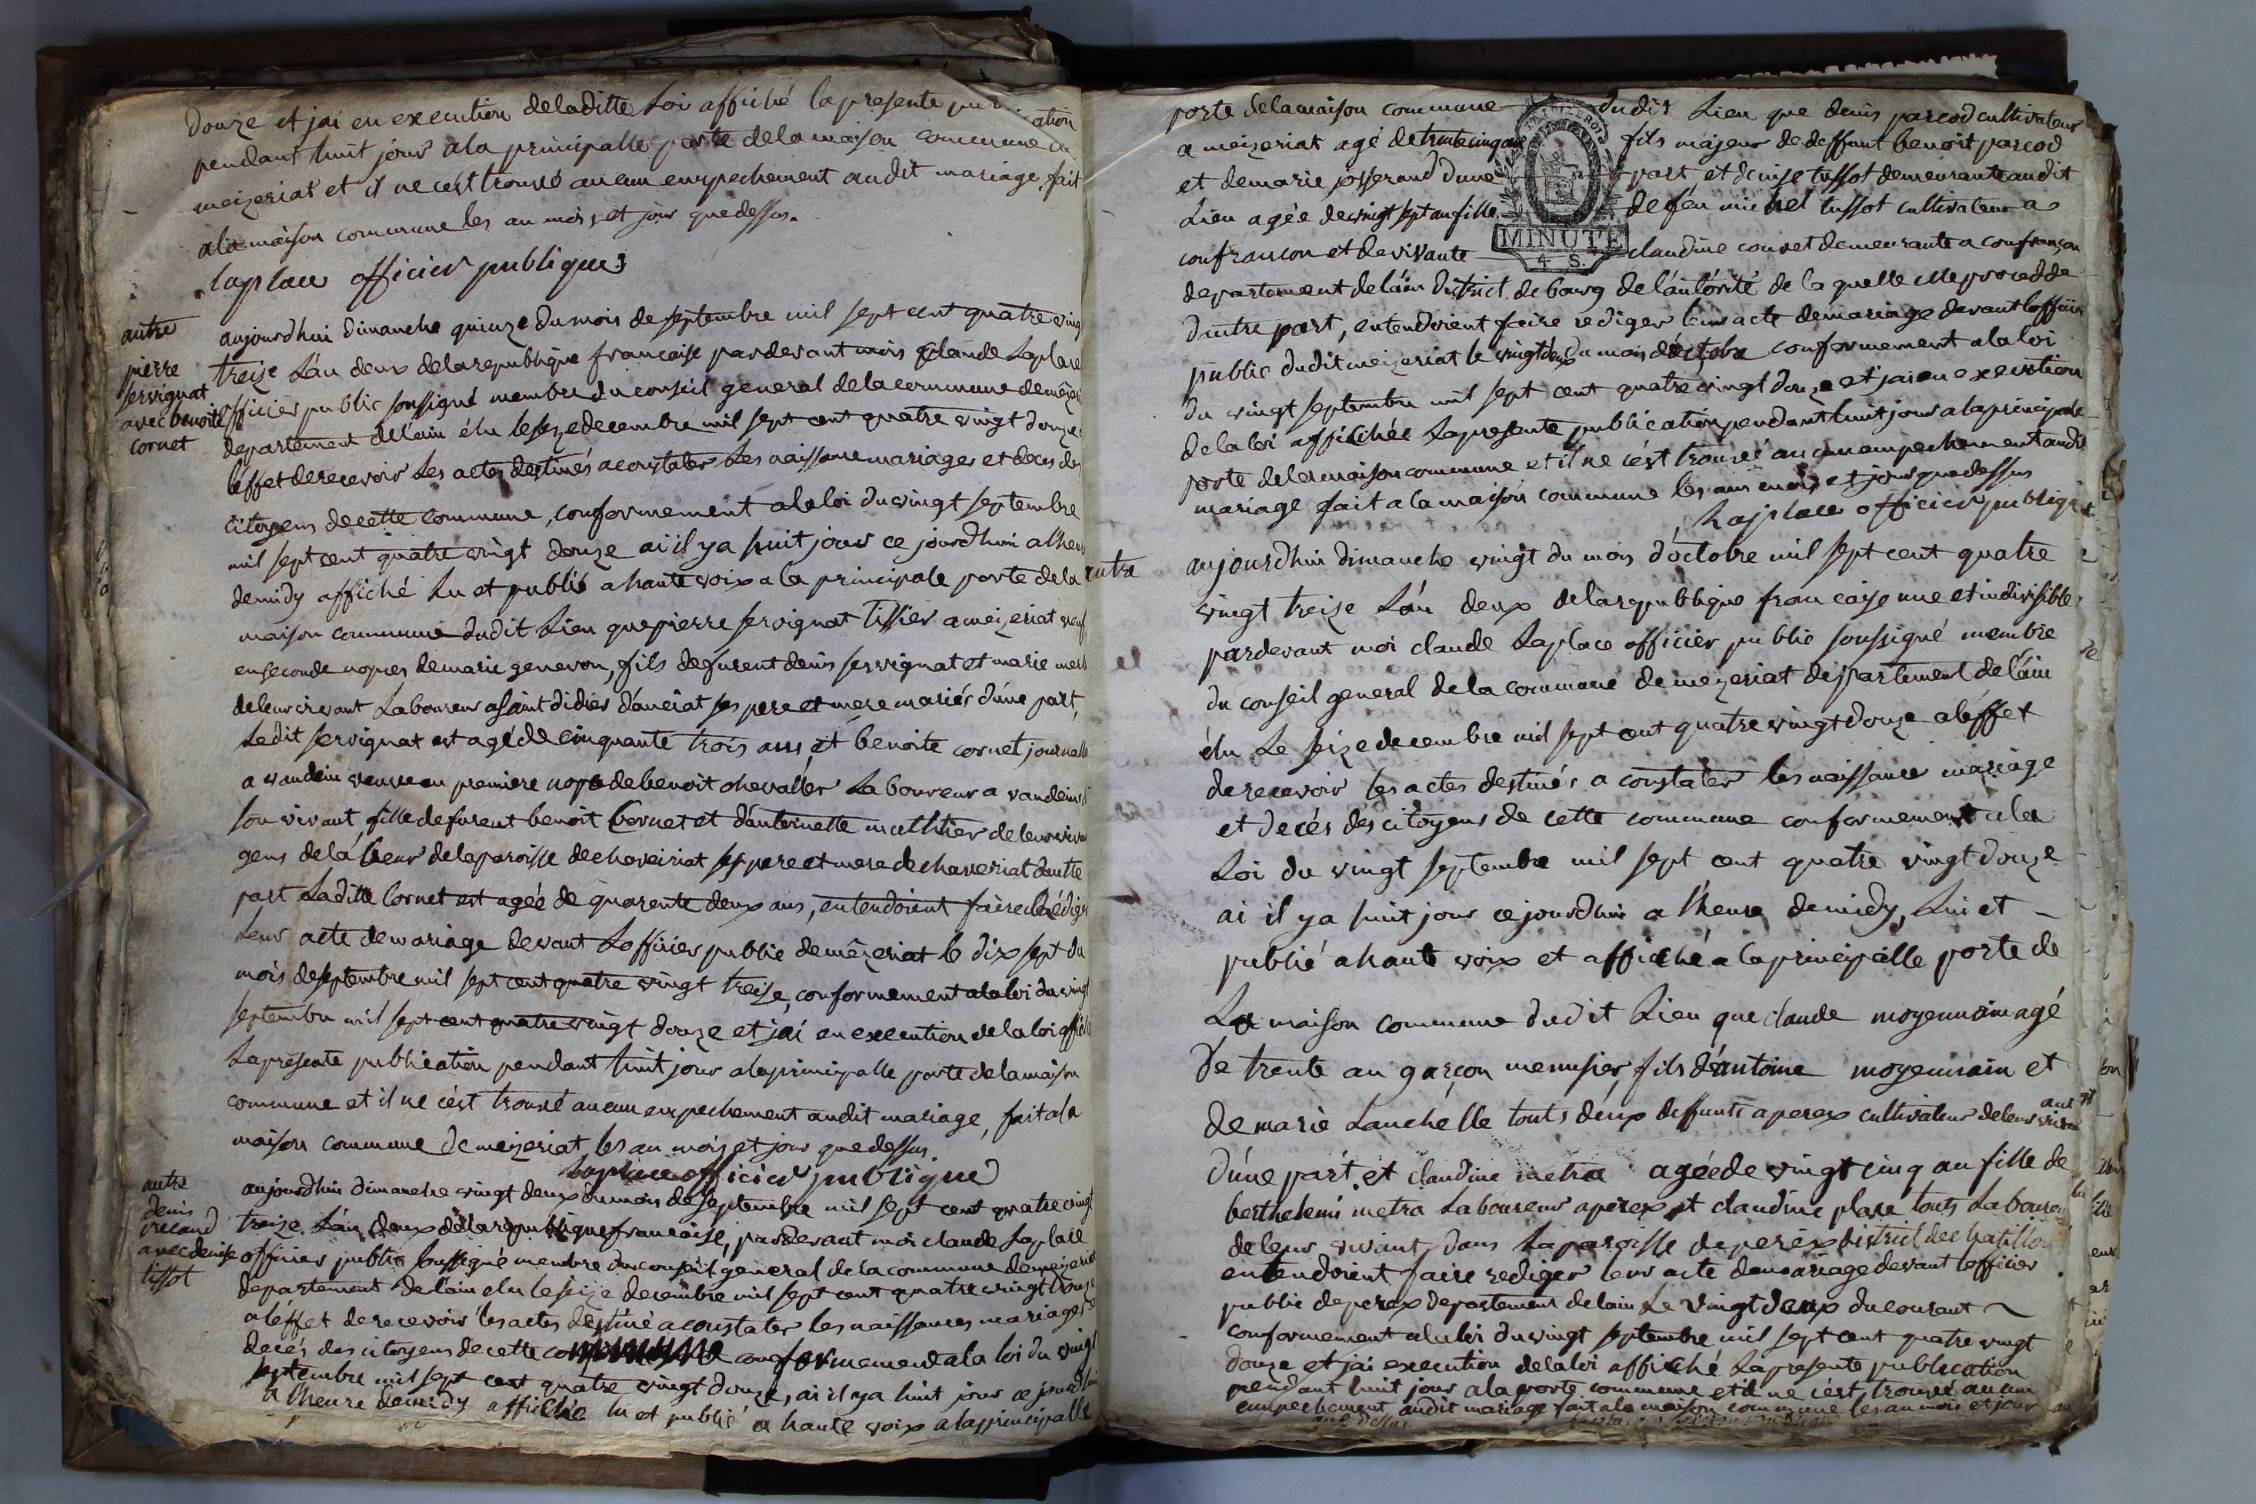 douze et jai en execution deladitte Loi affiché la presente pu ation
pendant huit jours ala principalle porte dela maison commune
meizeriat et il ne cést trouvé aucun empechement audit mariage, fait
ala maison commune les an mois et jour quedessus.
laplace officier publique
autre
pierre
servignat
avec benoite
cornet
aujourdhui dimanche quinze dumois de septembre mil sept cent quatre ving
treise Lán deux delarepublique francaise pardevant mois Claude Laplace
officier public soussigné membre du conseil general dela commune demézeri
departement deláin élu leseizedecembre mil sept cent quatre vingt douze
léffet derecevoir Les actes destinés aconstater Les naissance mariages et déces des
citoyens decette commune, conformement alaloi du vingt septembre
mil sept cent quatre vingt douze ai il ya huit jours ce jourdhui alheure
demidy affiché Lu et publié a haute voix a la principale porte dela
maison commune dudit Lieu quepierre servignat tissier a meizeriat veuf
enseconde nopces demarie genevon, fils defurent denis servignat et marie
deleur vivant Laboureur asaint didier dáuciat ses pere et mere mariés dúne part,
Ledit servignat est agé de cinquante trois ans et benoite cornet journall
a vandein veuve en premiere nopce debenoit chevallier Laboureur a vandeins
son vivant, fille defurent benoit Cornet et dántoinette muthtier deleur viva
gens delá Cour delaparoisse dechaveiriat ses pere et mere de chaveiriat dautte
part Laditte Cornet est ageé de quarente deux ans, entendoient faire rédiger
Leur acte demariage devant Lofficier public demézeriat le dix sept du
mois deseptembre mil sept cent quatre vingt treise, conformement alaloi du vingt
septembre mil sept cent quatre vingt douze et jai en execution dela loi affiché
Lapresente publication pendant huit jours alaprincipalle porte delamaison
commune et il ne cést trouvé aucun empechement audit mariage, fait ala
maison commune de meizeriat les an mois et jour quedessus.
laplace officier publique
autre
denis
avec denise
tissot
aujourdhui dimanche vingt deux dumois de septembre mil sept cent quatre vingt
treize Lán deux delarepublique francaise, pardevant moi claude Laplace
officier public soussigné membre du conseil general dela commune demeizeriat
departement deláin elu leseize decembre mil sept cent quatre vingt douze
aléffet derecevoir les actes destiné aconstater les naissances mariages
decés des citoyens de cette conformement ala loi du vingt
septembre mil sept cent quatre vingt douze, ai il ya huit jours ce jourdhui
a lheure demidy affiché lu et publié a haute voix alaprincipalle
porte delamaison commune dudit Lieu que denis parcod cultivateur
a meizeriat agé de trente cinq ans fils majeur de deffunt benoit parcod
et demarie josserand dune part, et denise tussot demeurante audit
Lieu agée devingt sept an fille defeu michel tussot cultivateur a
confrancon et devivante claudine couvet demeurante a confrançon
departement deláin district de bourg deláutorité de la quelle elle procedde
dautre part, entendoient faire rediger leur acte demariage devant lofficier
public dudit meizeriat le vingt deux du mois doctobre conformement ala loi
du vingt septembre mil sept cent quatre vingt douze et jai en execution
dela loi affichée Lapresente publication pendant huit jours alaprincipale
porte dela maison commune et il ne cést trouvé aucun empechement audit
mariage fait a la maison commune les ans mois et jour que dessus
Laplace officier publique
MINUTE
4 S.
autre
aujourdhui dimanche vingt du mois dóctobre mil sept cent quatre
vingt treize Lán deux delarepublique francaise une et indivisible
pardevant moi claude Laplace officier public soussigné membre
du conseil general de la commune de mezeriat departement deláin
élu Le seize decembre mil sept cent quatre vingt douze aléffet
derecevoir les actes destinés a constater les naissance mariage
et decés des citoyens de cette commune conformement a la
Loi du vingt septembre mil sept cent quatre vingt douze
ai il ya huit jours cejourdhui a lheure demidy, Lui et
publié ahaute voix et affiché a la principalle porte de
La maison commune dudit Lieu que claude moyennain agé
de trente an garçon menusier, fils dántoine moyennain et
de marie Lauchélle touts deux deffunts a perex cultivateur deleur vivant
dúne part, et claudine metra agéede vingt cinq an fille de
berthelemi metra Laboureur aperex, et claudine place touts Laboureur
deleur vivant dans La paroisse de peréx district de chatillon
entendoient faire rediger leur acte demariage devant lofficier
public de perex departement de lain Le vingt deux du courant
conformement alaloi du vingt septembre mil sept cent quatre vingt
douze et jai execution dela loi affiché Lapresente publication
pendant huit jours ala porte commune et il ne cést trouvé aucun
empechement audit mariage fait ala maison commune les an mois et jour
que dessus